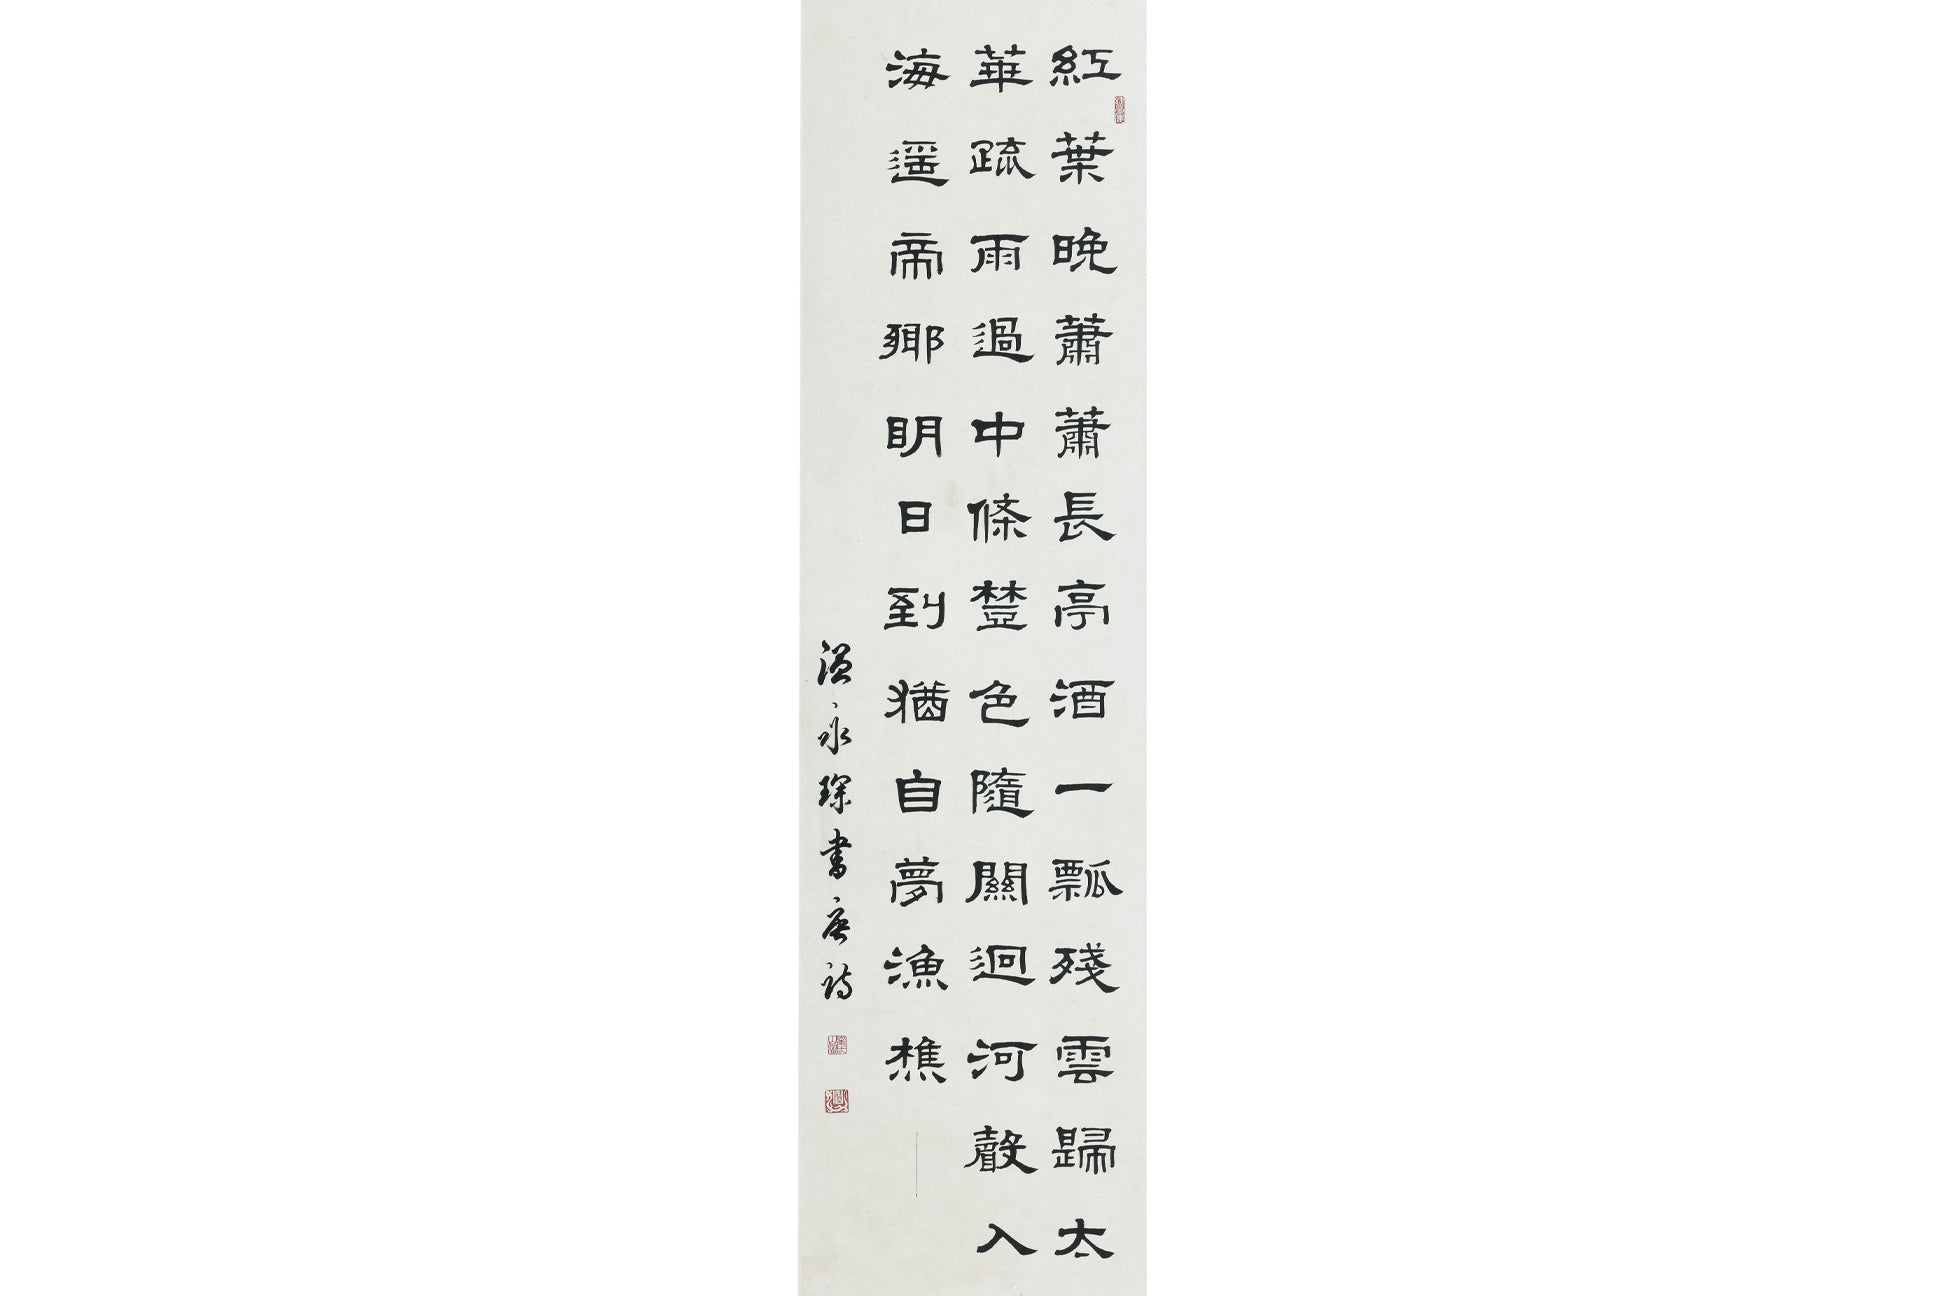 紅葉晚蕭蕭長亭酒一瓢殘雲歸太
華疏雨過中條樹色隨關迥河聲入
海遥帝鄉明日到猶自夢漁樵
温永琛書唐詩